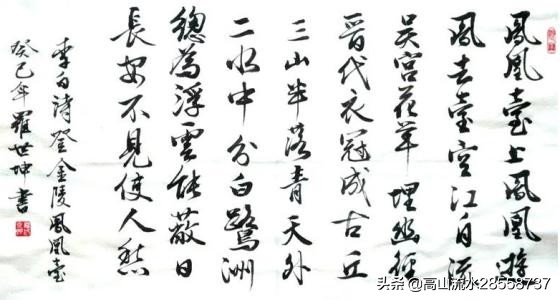 鳳凰臺上鳳凰游
鳳去臺空江自流
吴宫花草埋幽徑
晋代衣冠成古丘
三山半落青天外
二水中分白鷺洲
總為浮雲能蔽日
長安不見使人愁
李白诗登金陵鳳凰臺
癸巳年羅世坤書
头条@高山流水28558737